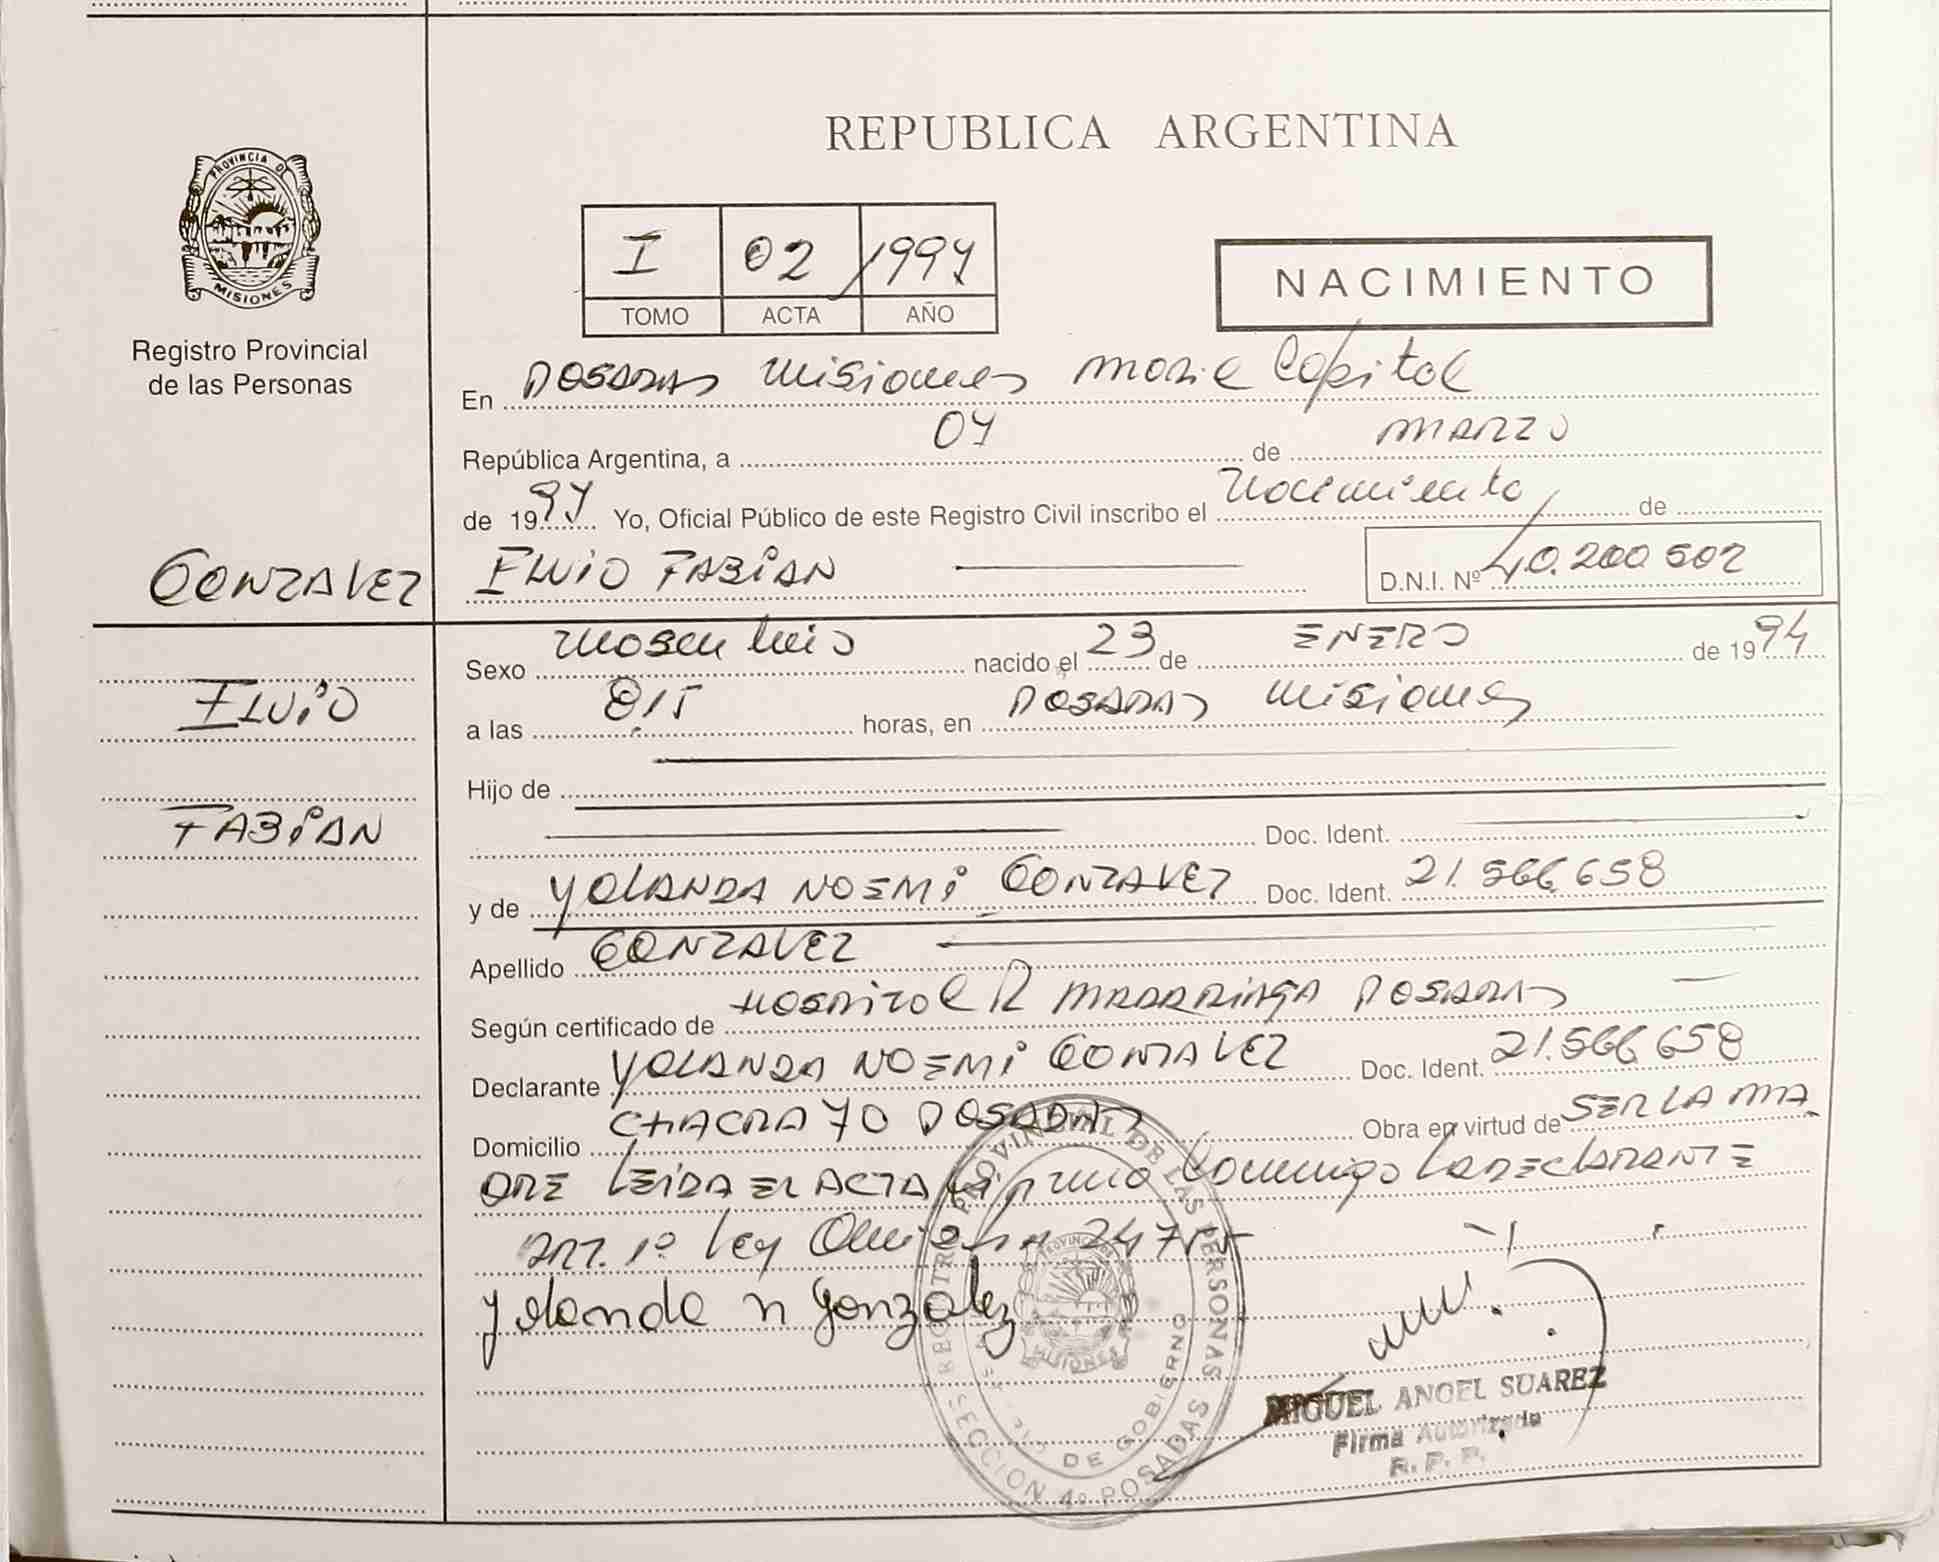 REPUBLICA ARGENTINA
PROVINCIA DE
MISIONES
Registro Provincial
de las Personas
I 02 /1997
TOMO ACTA AÑO
NACIMIENTO
En POSADAS Misiones Capital
República Argentina, a 04 de MARZO
de 1997 Yo, Oficial Público de este Registro Civil inscribo el Nacimiento de
GONZALEZ
ELVIO FABIAN D.N.I. Nº 40.200 502
Sexo Masculino nacido el 23 de ENERO de 1994
ELVIO
a las 8,15 horas, en POSADAS Misiones
Hijo de
FABIAN
Doc. Ident.
y de YOLANDA NOEMI GONZALEZ Doc. Ident. 21.566.658
Apellido GONZALEZ
Según certificado de HOSPITAL R MADARIAGA POSADAS
Declarante YOLANDA NOEMI GONZALEZ Doc. Ident. 21.566 658
Domicilio CHACRA 70 POSADAS Obra en virtud de SER LA MA
DRE LEIDA EL ACTA firma Conmigo LA DECLARANTE
ART. 1º Ley 247
Yolanda N Gonzalez
REGISTRO PROVINCIAL DE LAS PERSONAS
PROVINCIA DE
MISIONES
DE GOBIERNO
SECCION 4º POSADAS
MIGUEL ANGEL SUAREZ
Firma Autorizada
R. P. P.